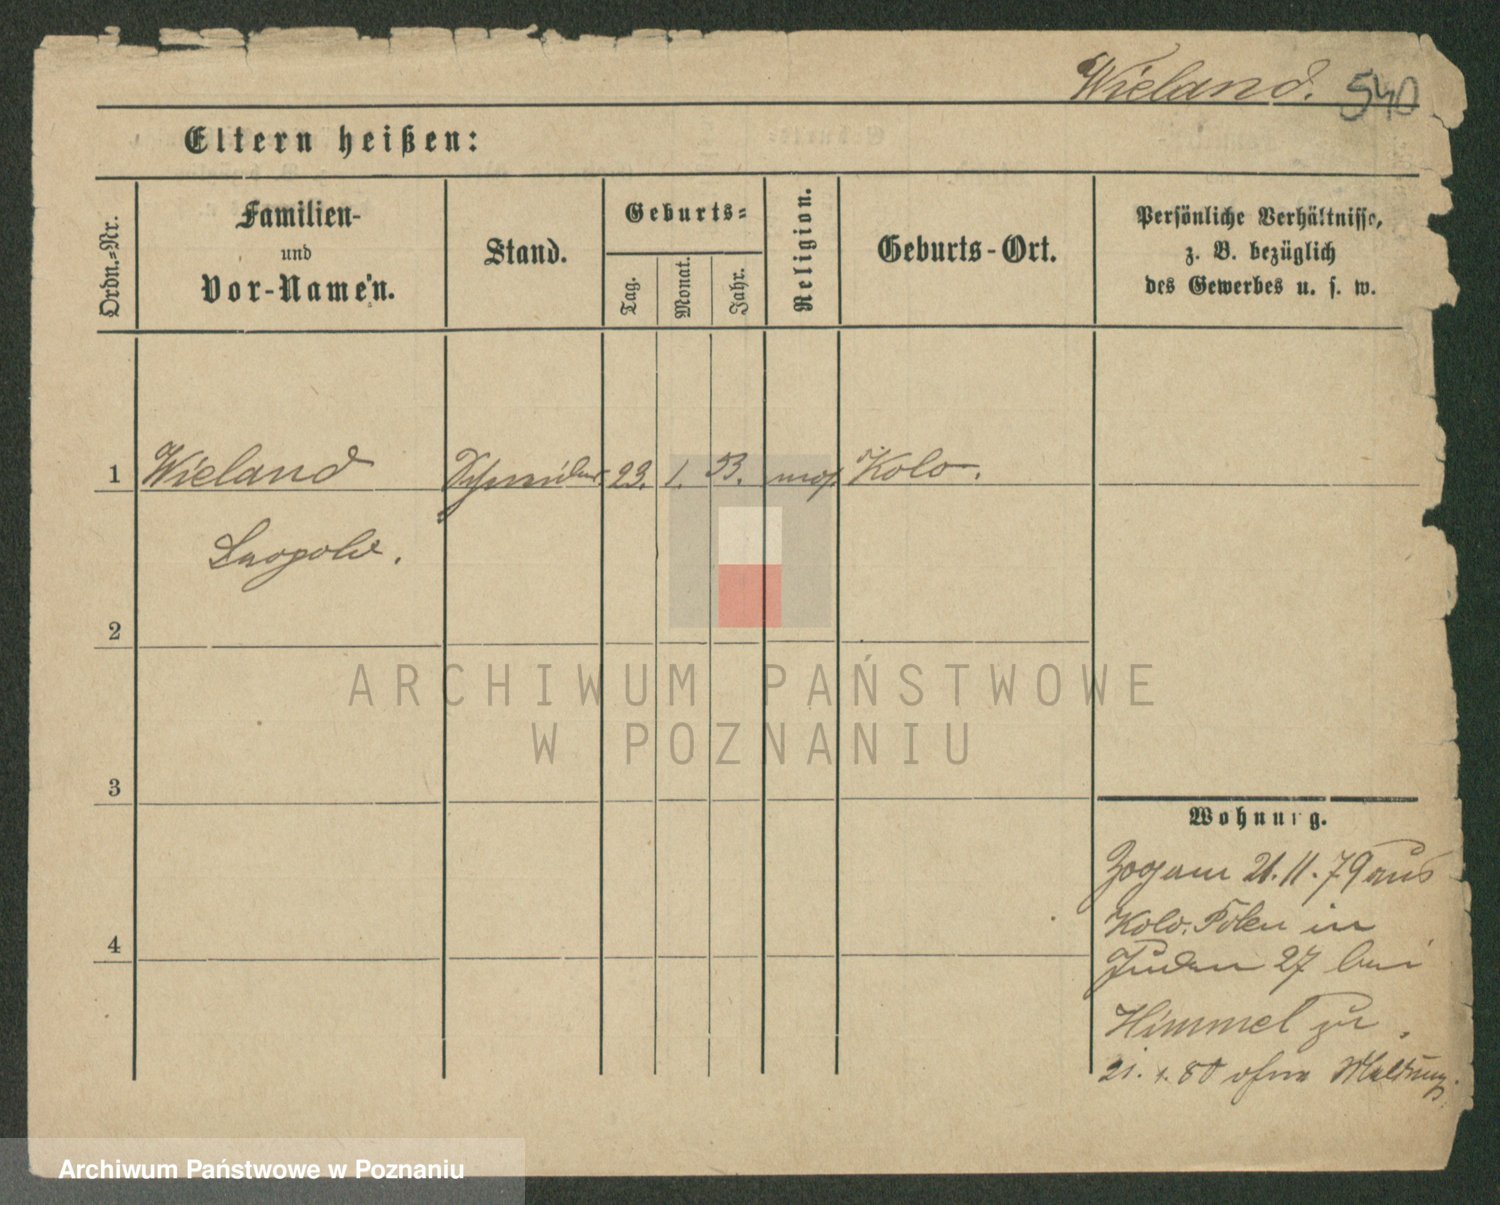 Wieland. 540
Eltern heißen:
Ordn.=Nr.
Familien-
und
Vor-Namen.
Stand.
Geburts=
Tag.
Monat.
Jahr.
Religion.
Geburts-Ort.
Persönliche Verhältnisse,
z. B. bezüglich
des Gewerbes u. s. w.
1 Wieland Schneider 23. 1. 53. mos. Kolo.
Leopold.
2
3
4
Wohnung.
Zog am 21. 11. 79 aus
Kolo. Polen in
Juden 27 bei
Himmel zu.
21. 1. 80 ohne Meldung.
ARCHIWUM PAŃSTWOWE
W POZNANIU
Archiwum Państwowe w Poznaniu